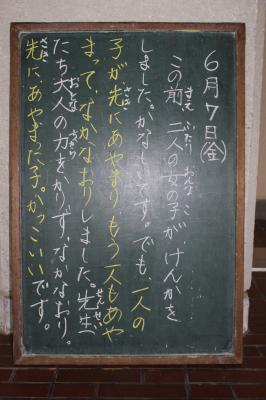 6月7日(金)
まえ ふたり おんな こ
この前、二人の女の子が、けんかを
しました。かなしいです。でも、一人の
さき
子が、先にあやまり、もう一人もあや
せんせい
まって、なかなおりしました。先生
おとな ちから
たち大人の力をかりず、なかなおり。
さき
先に、あやまった子。かっこいいです。